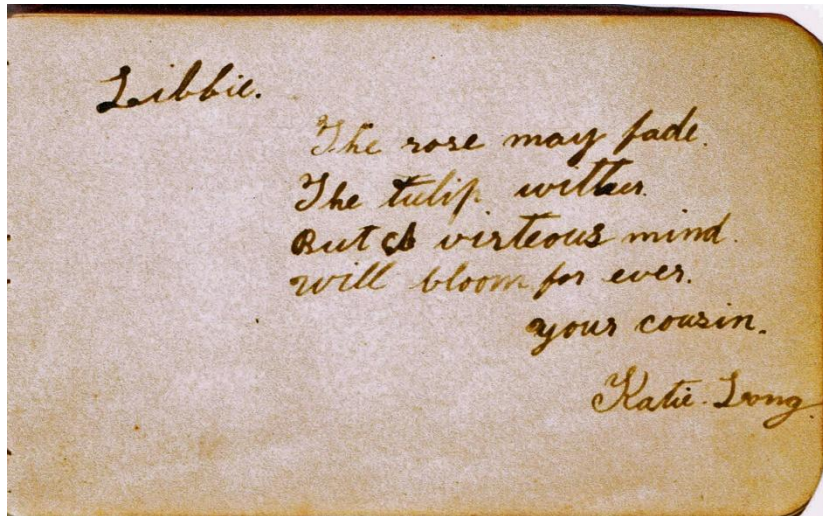 Libbie.
The rose may fade.
The tulip wither.
But a virteous mind.
will bloom for ever.
your cousin.
Katie Long.